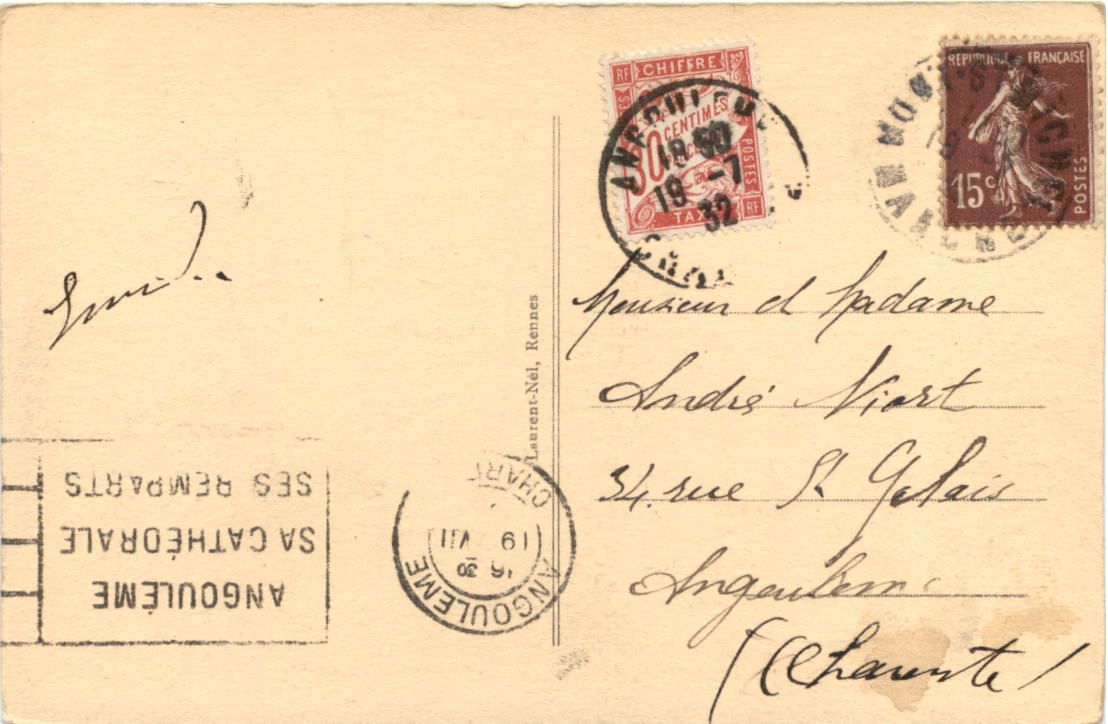 RF CHIFFRE
30 CENTIMES
POSTES
TAXE RF
18 30
19 -7
32
REPUBLIQUE FRANÇAISE
15 c
POSTES
MONT-ST-MICHEL
MANCHE
Laurent-Nél, Rennes
Monsieur et Madame
André Niort
34, rue St Gelais
Angoulême
(Charente)
ANGOULÊME
SA CATHÉDRALE
SES REMPARTS
ANGOULEME
16 30
19 VII
CHAR